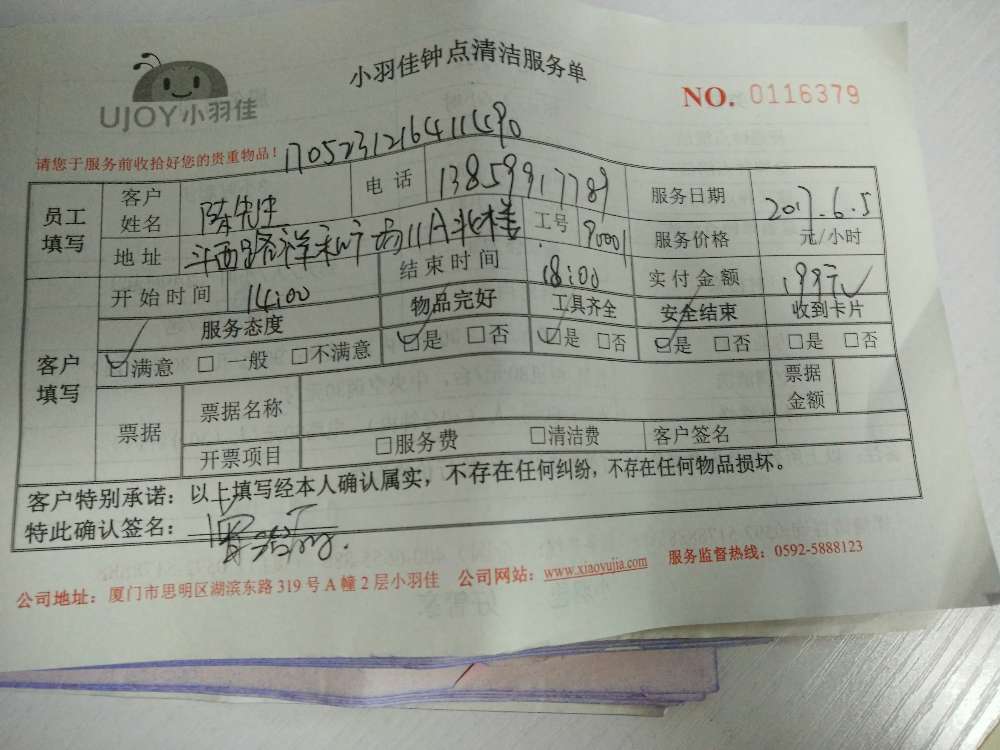 小羽佳钟点清洁服务单
UJOY小羽佳
NO. 0116379
请您于服务前收拾好您的贵重物品!
员工填写 客户姓名 陈先生 电话 13859917789 服务日期 2017.6.5
地址 祥和广场11A北楼 工号 90001 服务价格 元/小时
开始时间 14:00 结束时间 18:00 实付金额 199元
客户填写 服务态度 物品完好 工具齐全 安全结束 收到卡片
☑满意 □一般 □不满意 ☑是 □否 ☑是 □否 ☑是 □否 □是 □否
票据 票据名称 票据金额
开票项目 □服务费 □清洁费 客户签名
客户特别承诺：以上填写经本人确认属实，不存在任何纠纷，不存在任何物品损坏。
特此确认签名：
公司地址：厦门市思明区湖滨东路319号A幢2层小羽佳 公司网站：www.xiaoyujia.com 服务监督热线：0592-5888123